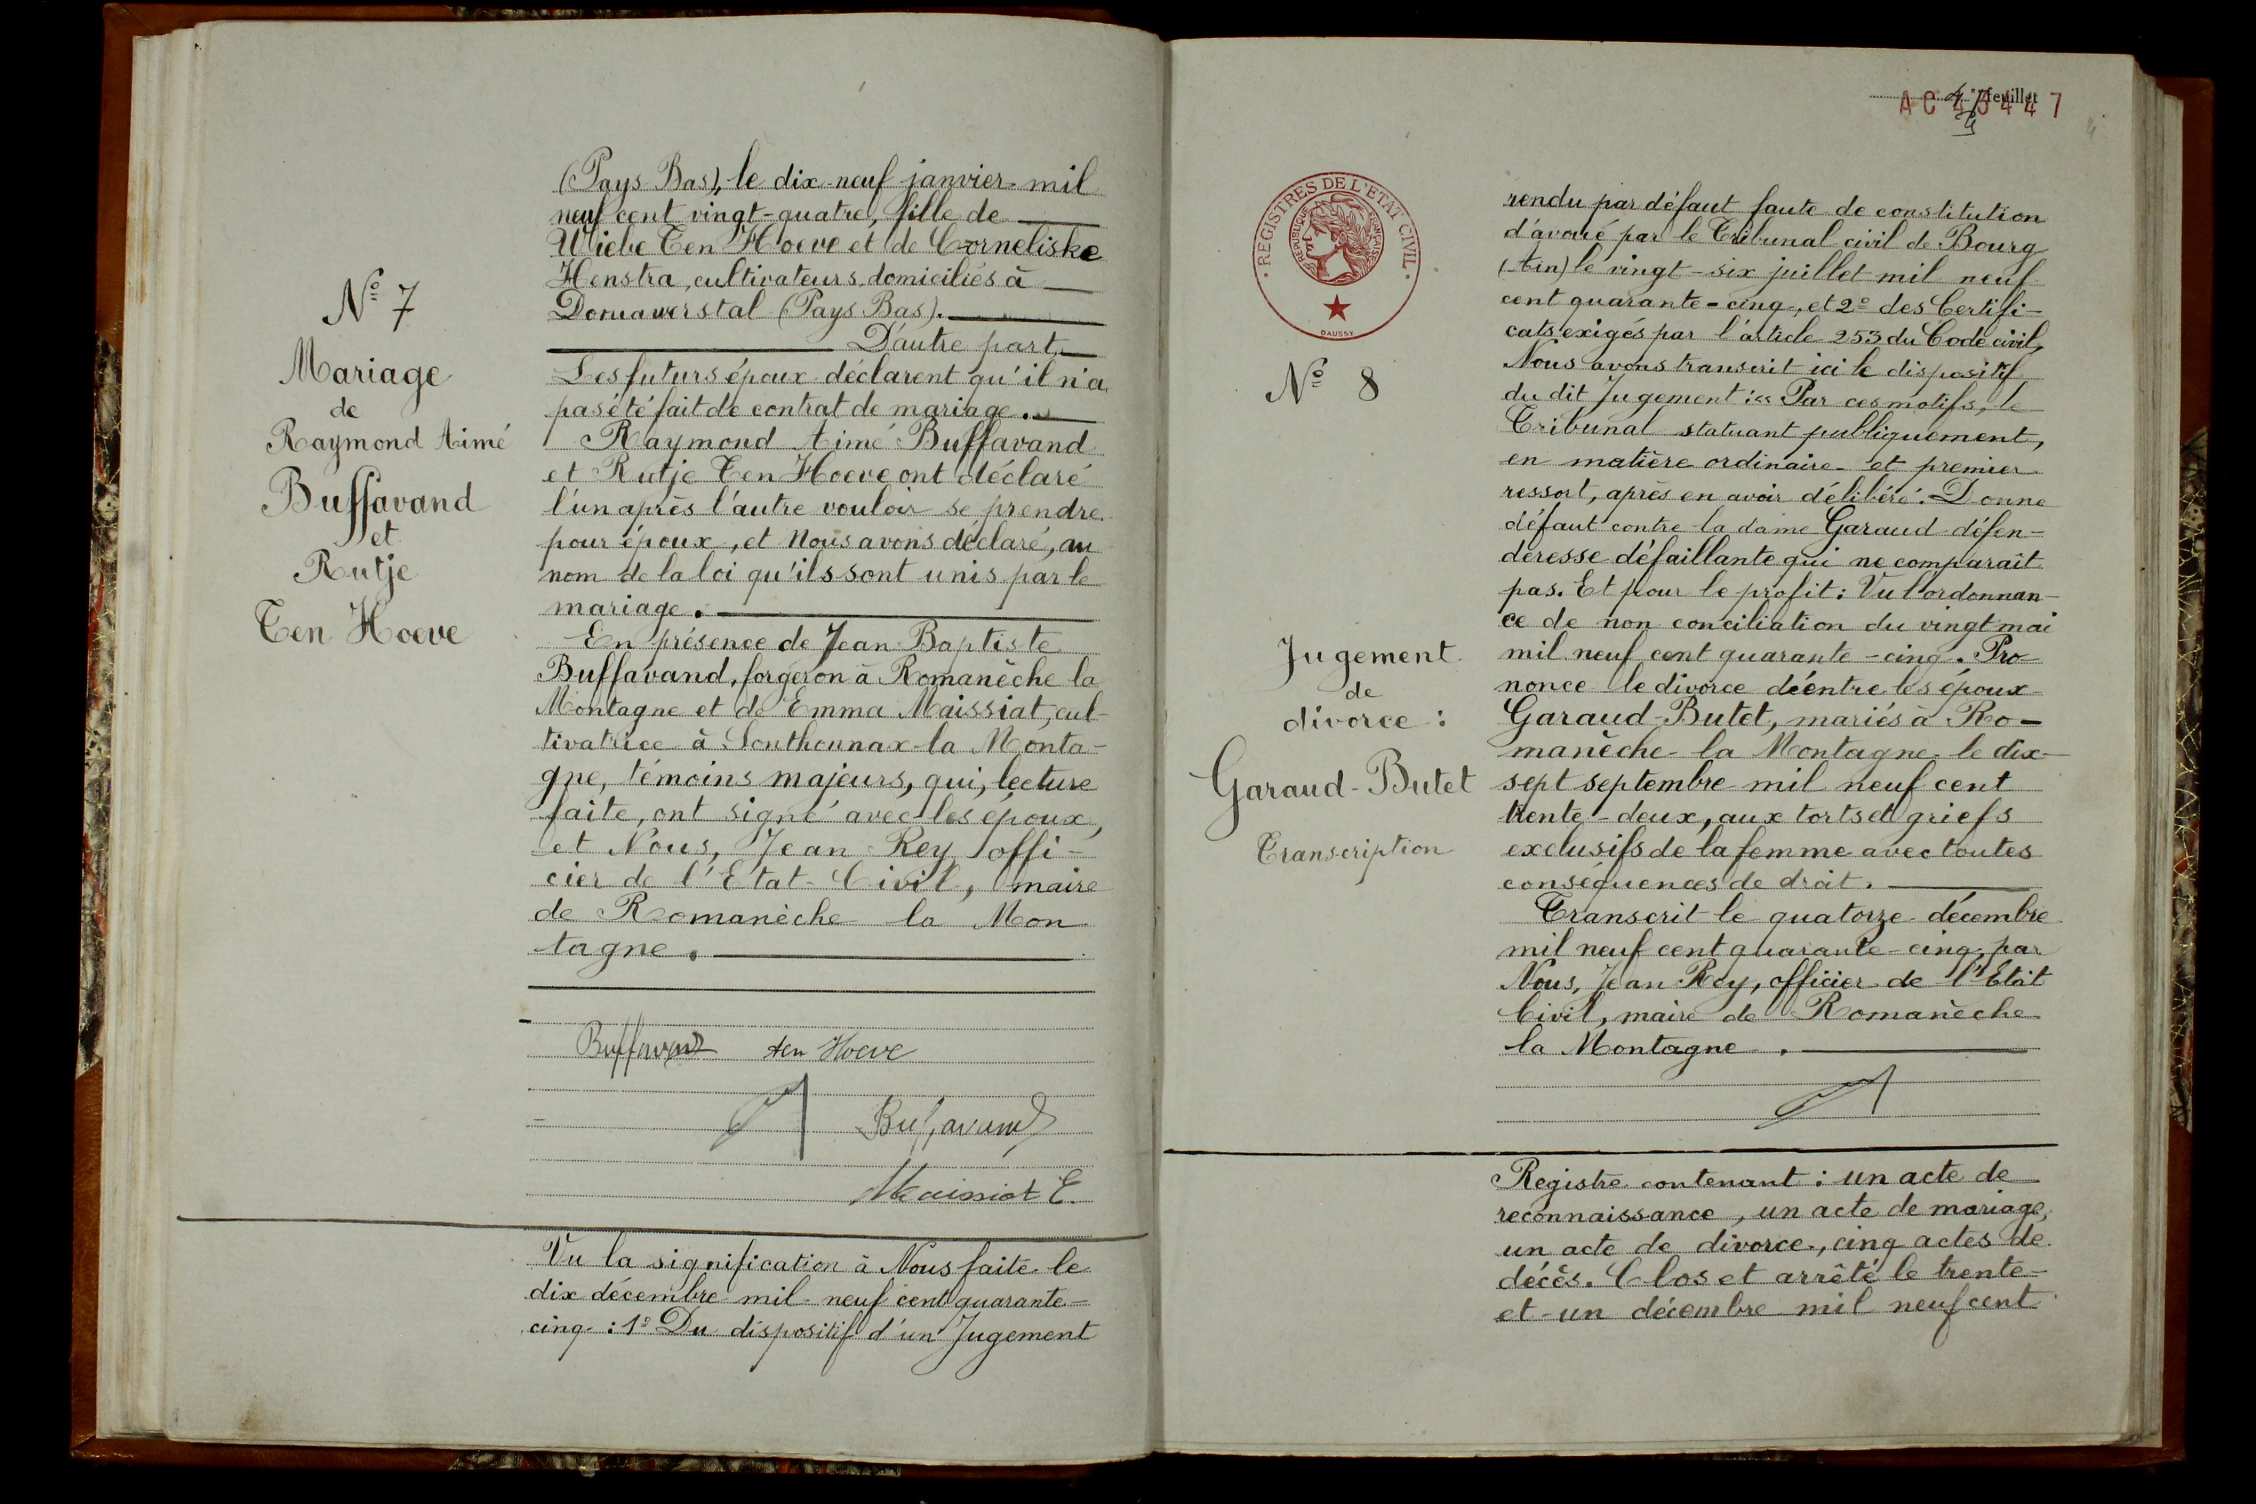 N° 7
Mariage
de
Raymond Aimé
Buffavand
et
Rutje
Ten Hoeve
(Pays Bas), le dix-neuf janvier mil
neuf cent vingt-quatre, fille de
Wiebe Ten Hoeve et de Corneliske
Henstra, cultivateurs domiciliés à
(Pays Bas).
D'autre part.
Les futurs époux déclarent qu'il n'a
pas été fait de contrat de mariage.
Raymond Aimé Buffavand
et Rutje Ten Hoeve ont déclaré
l'un après l'autre vouloir se prendre
pour époux, et Nous avons déclaré, au
nom de la loi qu'ils sont unis par le
mariage.
En présence de Jean Baptiste
Buffavand, forgeron à Romanèche la
Montagne et de Emma Maissiat, cul-
tivatrice à Sonthonnax-la Monta-
gne, témoins majeurs, qui, lecture
faite, ont signé avec les époux,
et Nous, Jean Rey offi-
cier de l'Etat-Civil, maire
de Romanèche la Mon
tagne.
Buffavand ten Hoeve
Buffavand
Maissiat E.
Vu la signification à Nous faite le
dix décembre mil neuf cent quarante-
cinq : 1° Du dispositif d'un Jugement
feuillet
AC 45447
REGISTRES DE L'ETAT CIVIL
REPUBLIQUE FRANÇAISE
DAUSSY
N° 8
Jugement
de
divorce :
Garaud-Butet
Transcription
rendu par défaut faute de constitution
d'avoué par le Tribunal civil de Bourg
(Ain) le vingt-six juillet mil neuf
cent quarante-cinq, et 2° des Certifi-
cats exigés par l'article 253 du Code civil,
Nous avons transcrit ici le dispositif
du dit Jugement : « Par ces motifs, le
Tribunal statuant publiquement,
en matière ordinaire et premier
ressort, après en avoir délibéré. Donne
défaut contre la dame Garaud défen-
deresse défaillante qui ne comparaît
pas. Et pour le profit : Vu l'ordonnan-
ce de non conciliation du vingt mai
mil neuf cent quarante-cinq. Pro-
nonce le divorce d'entre les époux
Garaud-Butet, mariés à Ro-
manèche-la Montagne le dix-
sept septembre mil neuf cent
trente-deux, aux torts et griefs
exclusifs de la femme avec toutes
conséquences de droit.
Transcrit le quatorze décembre
mil neuf cent quarante-cinq, par
Nous, Jean Rey, officier de l'Etat
Civil, maire de Romanèche
la Montagne.
Registre contenant : un acte de
reconnaissance, un acte de mariage,
un acte de divorce, cinq actes de
décès. Clos et arrêté le trente-
et-un décembre mil neuf cent